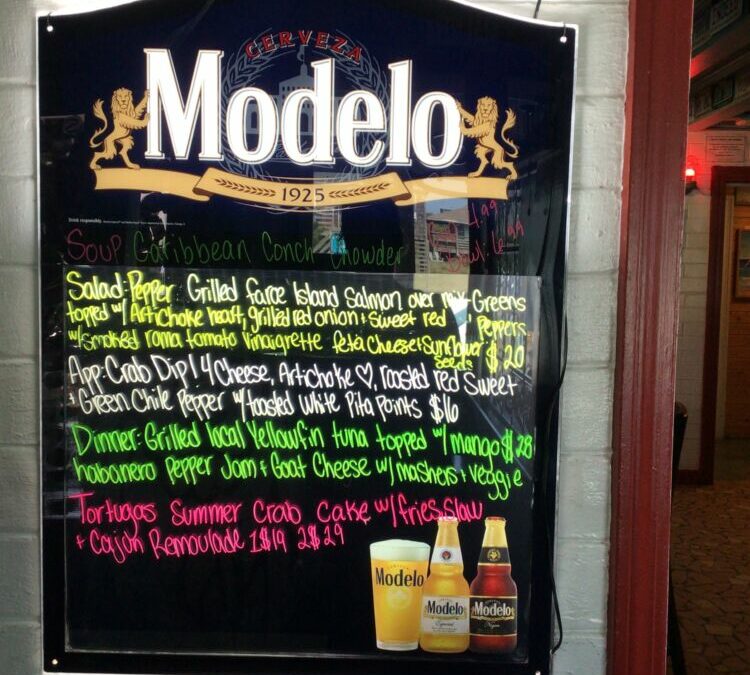 CERVEZA
Modelo
1925
Drink responsibly.
4.99
Soup Caribbean Conch Chowder
Bowl: 6.99
Salad: Pepper Grilled faroe Island Salmon over mix Greens
topped w/ Artichoke heart, grilled red onion + sweet red Peppers
w/smoked roma tomato vinaigrette feta Cheese + Sunflower $20
Seeds
App: Crab Dip! 4 Cheese, Artichoke ♡, roasted red Sweet
+ Green Chile Pepper w/ toasted White Pita Points $16
Dinner: Grilled local Yellowfin tuna topped w/ mango $28
habanero Pepper Jam + Goat Cheese w/ mashers + veggie
Tortugas Summer Crab Cake w/ fries slaw
+ Cajun Remoulade 1$19 2$29
Modelo
Modelo
Especial
Modelo
Negra